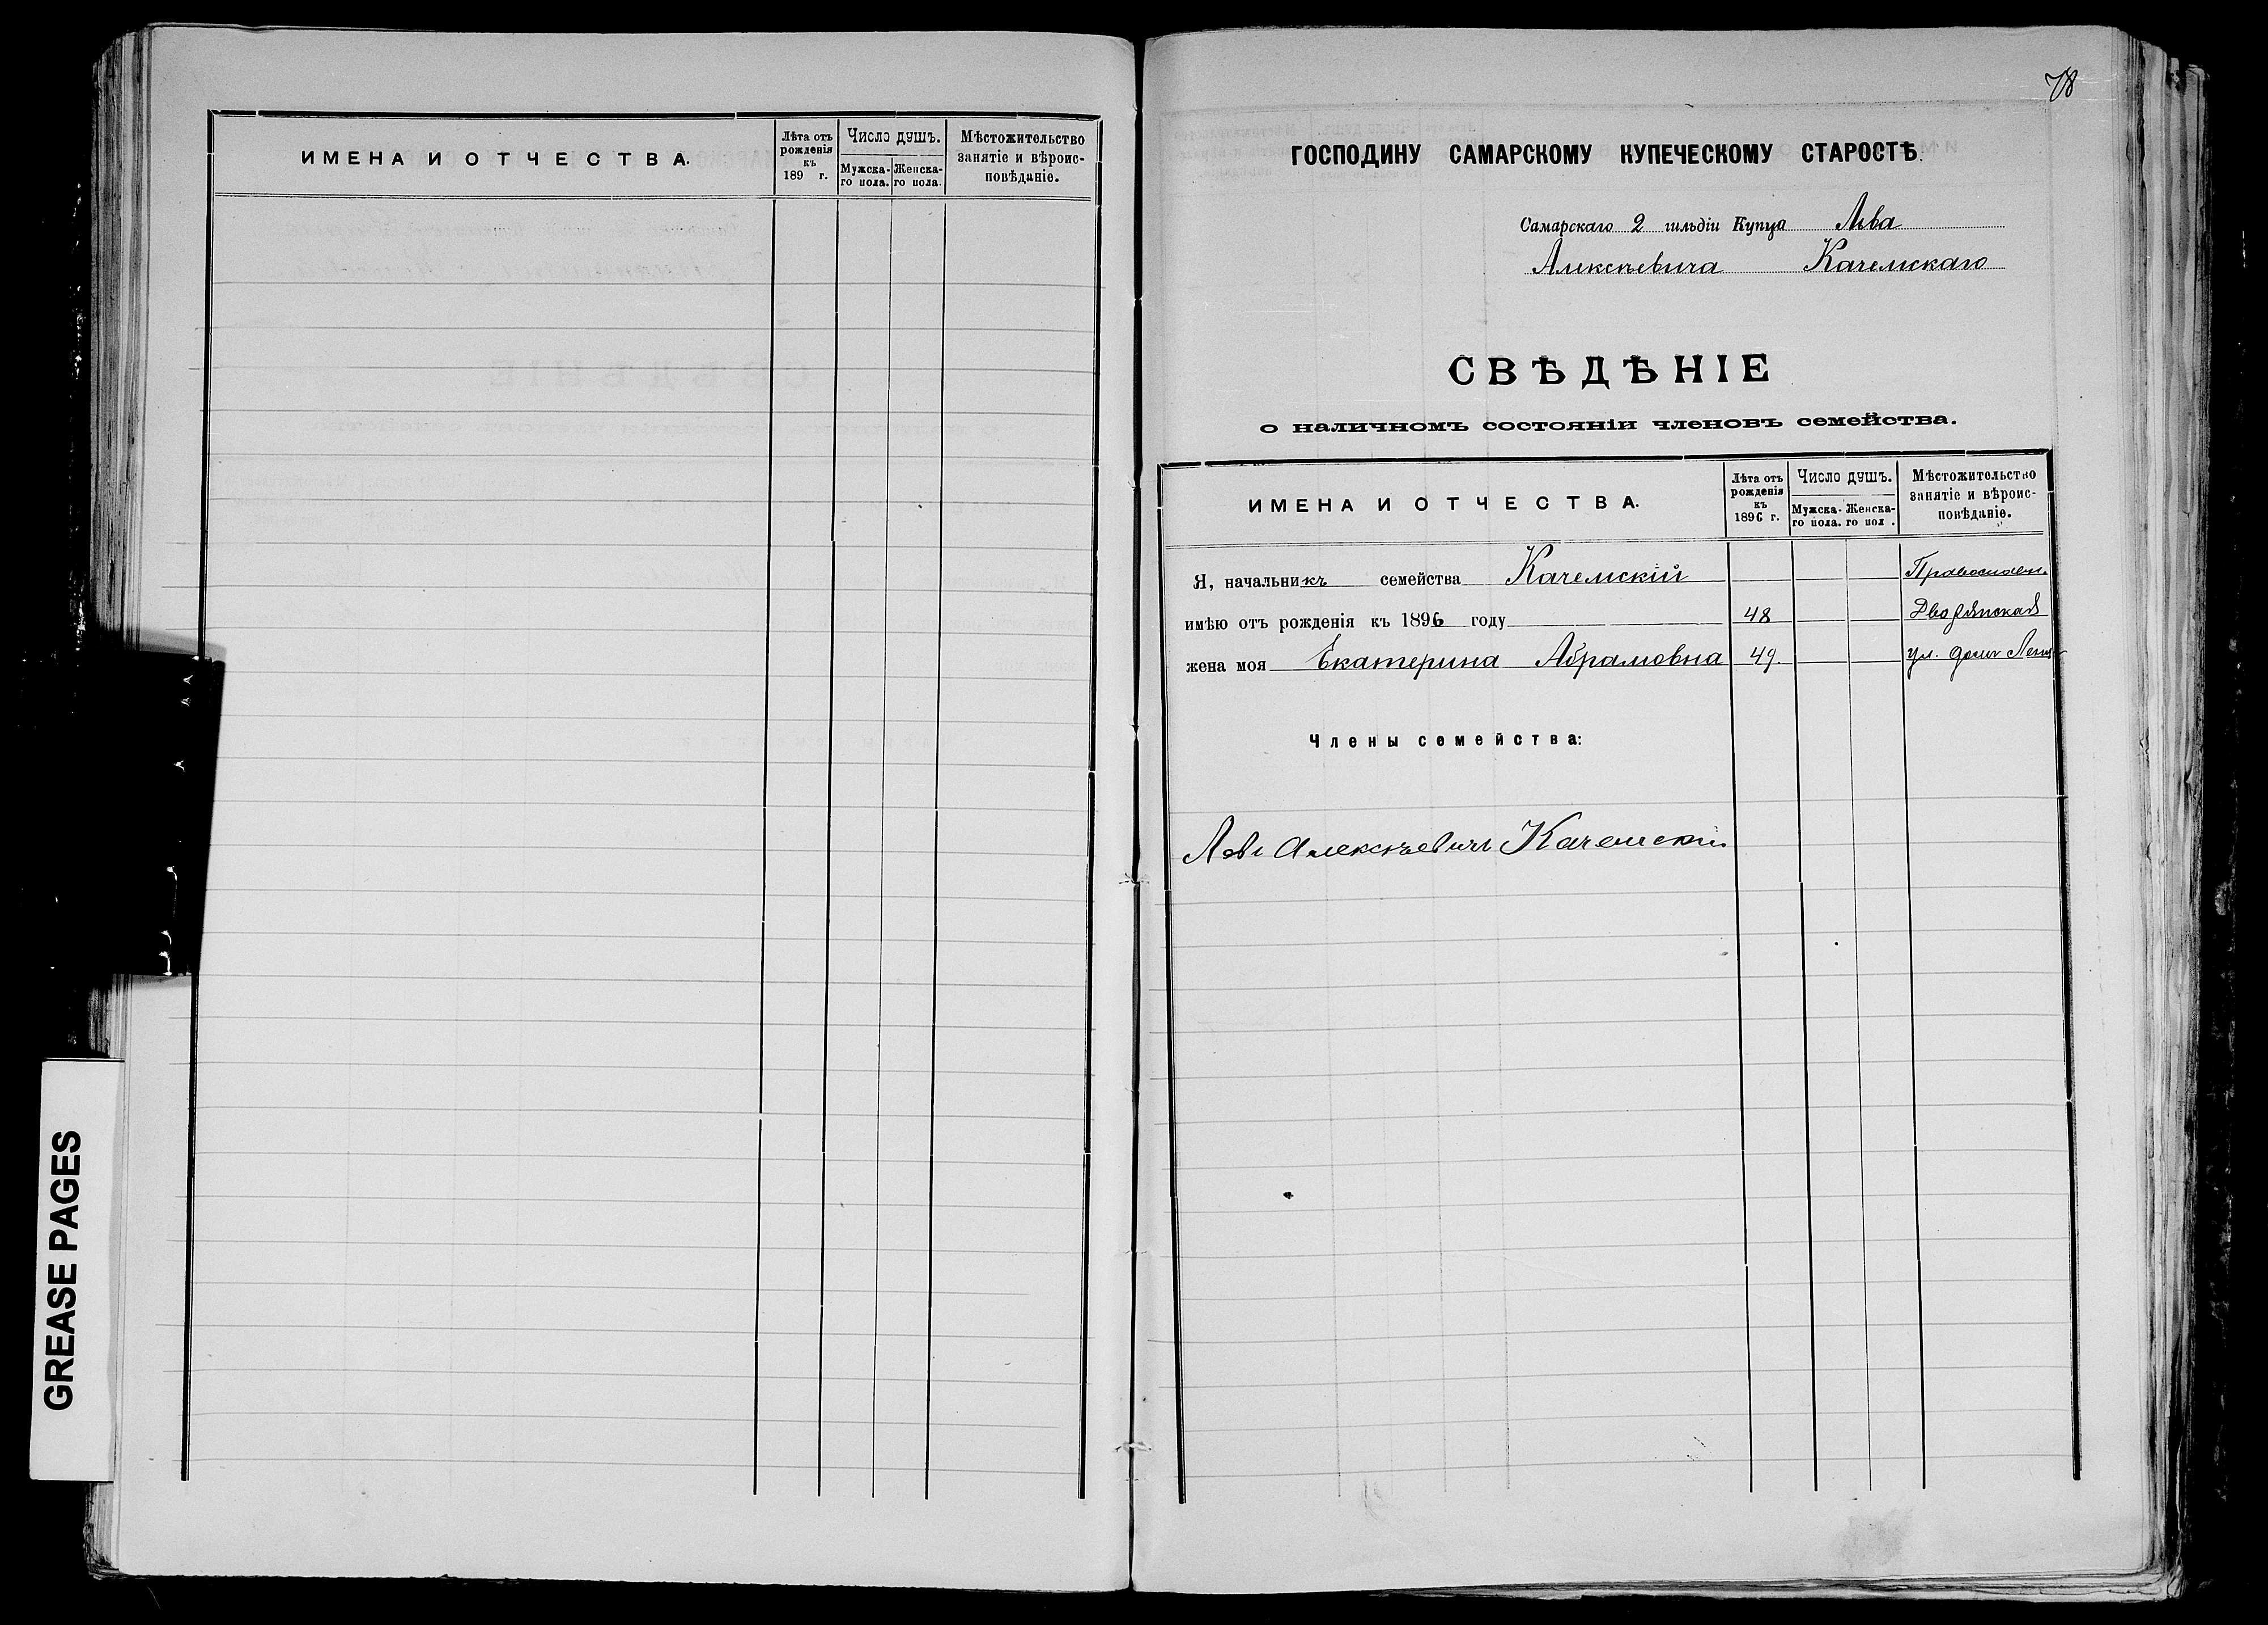 ИМЕНА И ОТЧЕСТВА.
Лѣта отъ рожденія къ 189 г.
Число душъ.
Мужска-го пола.
Женска-го пола.
Мѣстожительство занятіе и вѣроис-повѣданіе.
GREASE PAGES
78
ГОСПОДИНУ САМАРСКОМУ КУПЕЧЕСКОМУ СТАРОСТѢ.
Самарскаго 2 гильдіи Купца Льва
Алексѣевича Качемскаго
СВѢДѢНІЕ
о наличномъ состояніи членовъ семейства.
ИМЕНА И ОТЧЕСТВА.
Лѣта отъ рожденія къ 1896 г.
Число душъ.
Мужска-го пола.
Женска-го пол .
Мѣстожительство занятіе и вѣроис-повѣданіе.
Я, начальникъ семейства Качемскій Православн.
имѣю отъ рожденія къ 1896 году 48 Дворянская
жена моя Екатерина Абрамовна 49. ул. домъ
Члены семейства:
Левъ Алексѣевичъ Качемскій